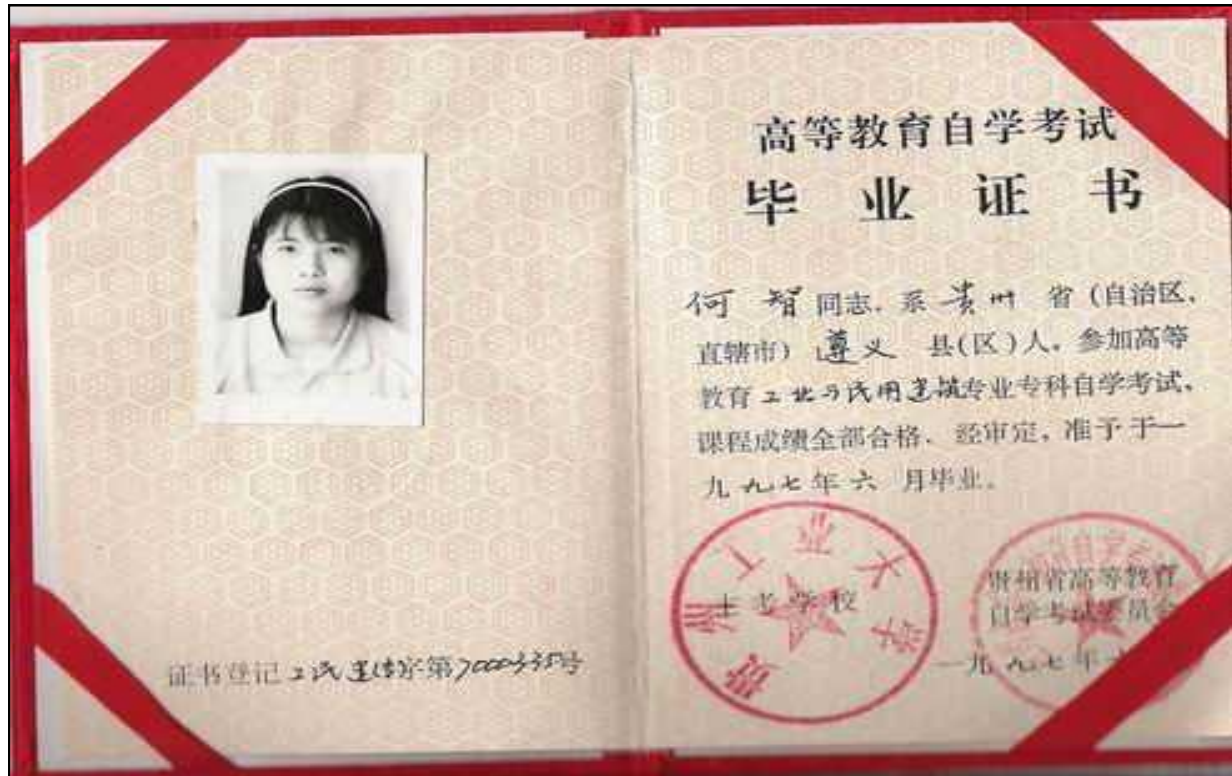 高等教育自学考试
毕业证书
何智同志、系贵州省(自治区、
直辖市)遵义县(区)人。参加高等
教育工业与民用建筑专业专科自学考试、
课程成绩全部合格、经审定,准予于一
九九七年六月毕业。
贵州工业大学
主考学校
贵州省高等教育
自学考试委员会
一九九七年
证书登记工民建(专)字第7000335号